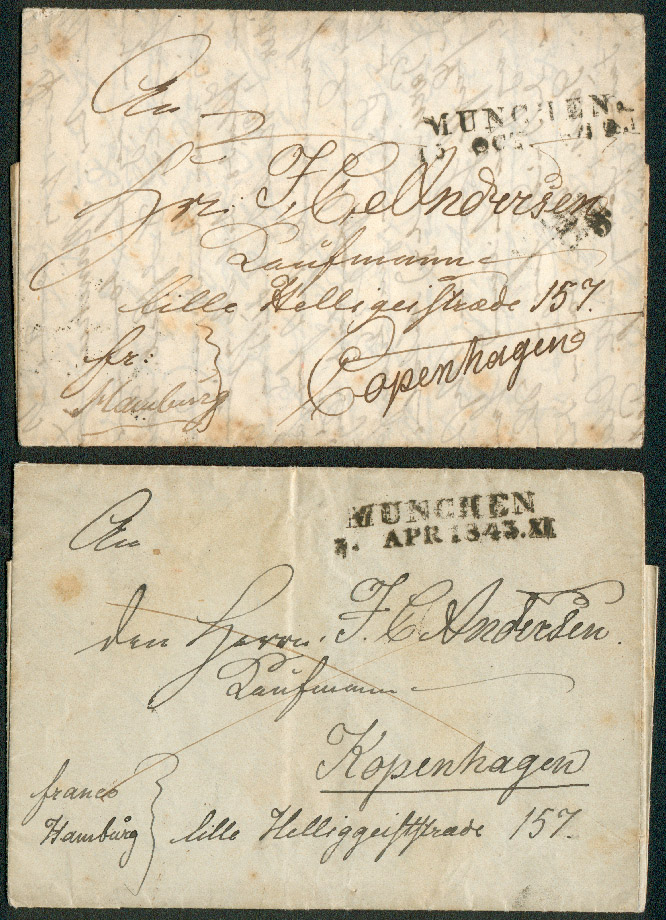 An
MÜNCHEN
15 OCT.
Hrn. F. C. Andersen
Kaufmann
lille Helligeistræde 157.
fr:
Hamburg
Copenhagen
An
MÜNCHEN
APR 1843. XI
den Herrn. F. C. Andersen.
Kaufmann
Kopenhagen
franco
Hamburg
lille Helliggeiststræde 157.